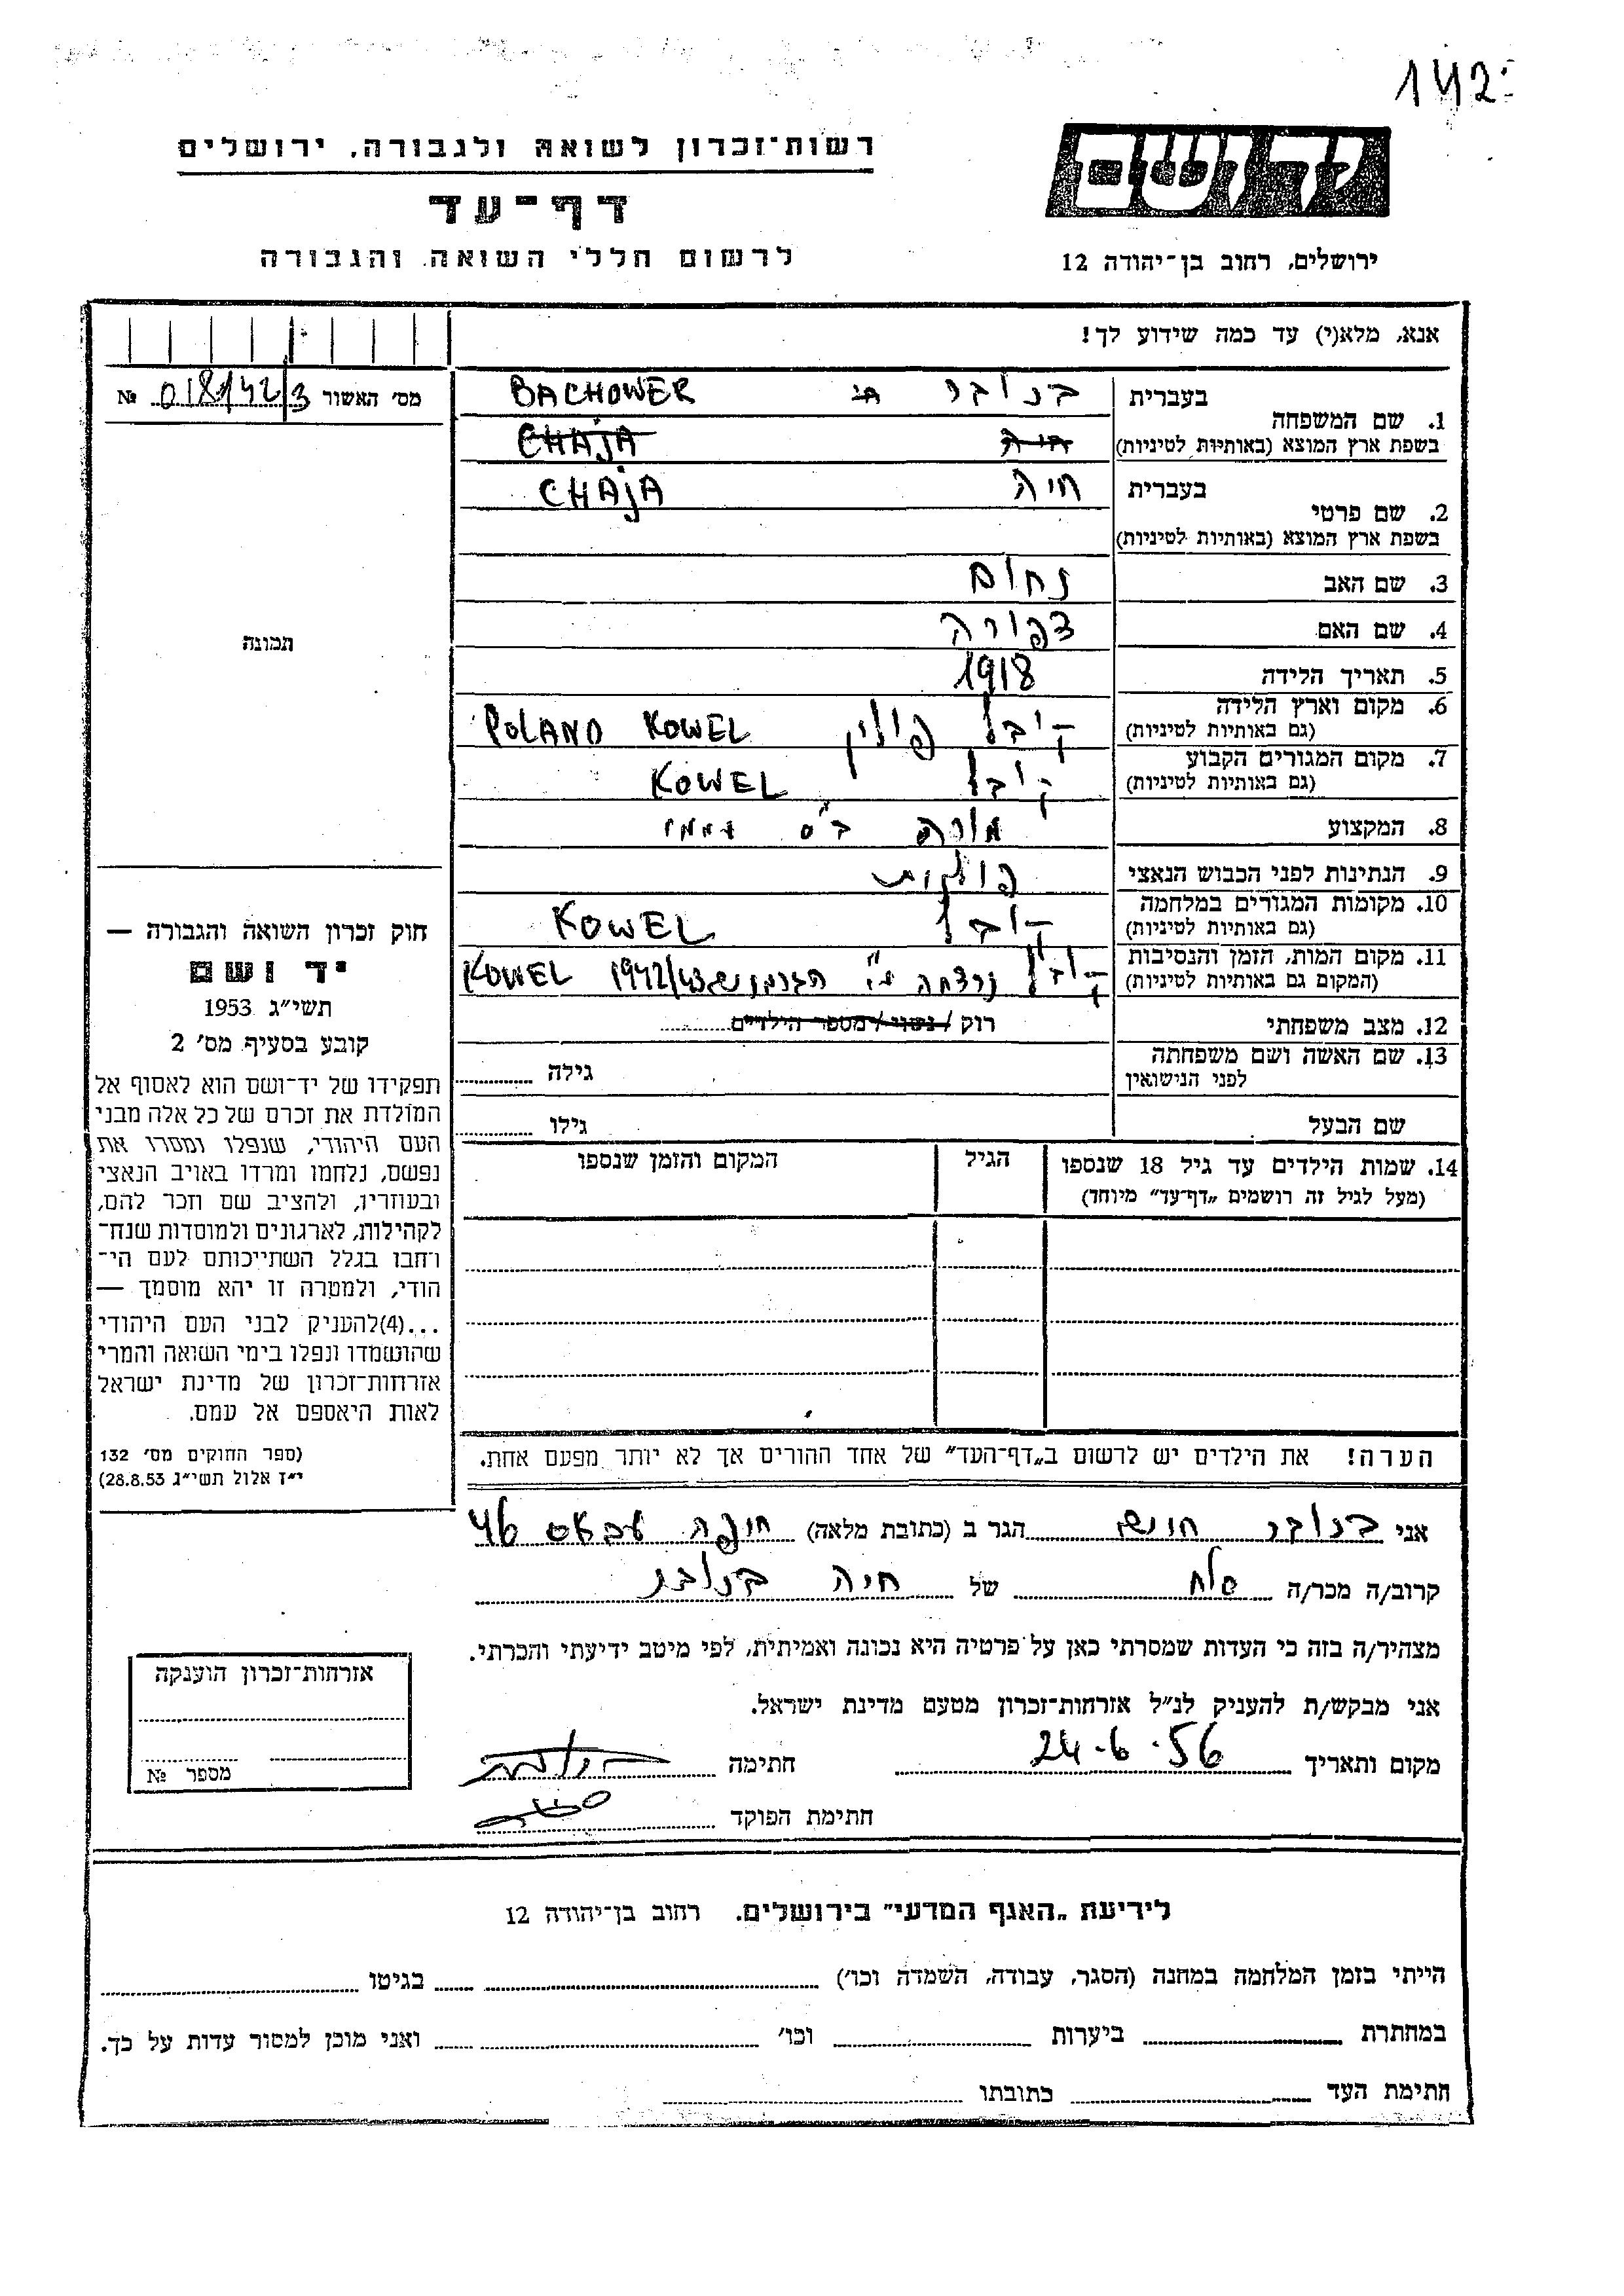 142
רשות-זכרון לשואה ולגבורה, ירושלים
דף-עד
לרשום חללי השואה והגבורה
יד ושם
ירושלים, רחוב בן-יהודה 12
אנא, מלא(י) עד כמה שידוע לך!
מס' האשור 018142/3 №
תמונה
1. שם המשפחה בעברית בכובר BACHOWER
בשפת ארץ המוצא (באותיות לטיניות) חיה CHAJA
2. שם פרטי בעברית חיה CHAJA
בשפת ארץ המוצא (באותיות לטיניות)
3. שם האב נחום
4. שם האם צפורה
5. תאריך הלידה 1918
6. מקום וארץ הלידה קובל פולין KOWEL POLAND
(גם באותיות לטיניות)
7. מקום המגורים הקבוע קובל KOWEL
(גם באותיות לטיניות)
8. המקצוע מורה בי"ס עממי
9. הנתינות לפני הכבוש הנאצי פולנית
10. מקומות המגורים במלחמה קובל KOWEL
(גם באותיות לטיניות)
11. מקום המות, הזמן והנסיבות קובל נרצחה ע"י הגרמנים 1942/43 KOWEL
(המקום גם באותיות לטיניות)
12. מצב משפחתי רוק / נשוי / מספר הילדים
13. שם האשה ושם משפחתה גילה
לפני הנישואין
שם הבעל גילו
14. שמות הילדים עד גיל 18 שנספו הגיל המקום והזמן שנספו
(מעל לגיל זה רושמים „דף-עד” מיוחד)
הערה! את הילדים יש לרשום ב„דף-העד” של אחד ההורים אך לא יותר מפעם אחת.
חוק זכרון השואה והגבורה —
יד ושם
תשי״ג 1953
קובע בסעיף מס' 2
תפקידו של יד-ושם הוא לאסוף אל
המולדת את זכרם של כל אלה מבני
העם היהודי, שנפלו ומסרו את
נפשם, נלחמו ומרדו באויב הנאצי
ובעוזריו, ולהציב שם וזכר להם,
לקהילות, לארגונים ולמוסדות שנח-
רחבו בגלל השתייכותם לעם הי-
הודי, ולמטרה זו יהא מוסמך —
...(4)להעניק לבני העם היהודי
שהושמדו ונפלו בימי השואה והמרי
אזרחות-זכרון של מדינת ישראל
לאות היאספם אל עמם.
(ספר החוקים מס' 132
י״ז אלול תשי״ג 28.8.53)
אני בכובר הגר ב (כתובת מלאה) חיפה עבאס 46
קרוב/ה מכר/ה אח של חיה בכובר
מצהיר/ה בזה כי העדות שמסרתי כאן על פרטיה היא נכונה ואמיתית, לפי מיטב ידיעתי והכרתי.
אני מבקש/ת להעניק לנ״ל אזרחות-זכרון מטעם מדינת ישראל.
מקום ותאריך 24.6.56 חתימה
חתימת הפוקד
אזרחות-זכרון הוענקה
מספר №
לידיעת „האגף המדעי” בירושלים. רחוב בן-יהודה 12
הייתי בזמן המלחמה במחנה (הסגר, עבודה, השמדה וכו') בגיטו
במחתרת ביערות וכו' ואני מוכן למסור עדות על כך.
חתימת העד כתובתו